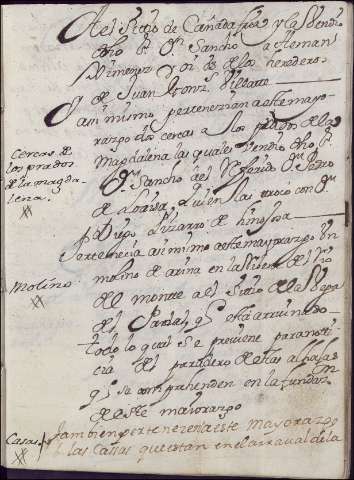 Al Sitio de Cañada fria y la Vendio
dho D. Dn Sancho a Hernan
Ximenez y oi es de los herederos
de Juan
asi mismo pertenezian a este mayo
razgo dos cercas a los prados de la
Magdalena las quales vendio dho D.
Dn Sancho al Referido Dn Pedro
de Loaisa, quien las troco con Dn
Diego Pizarro de Hinojosa
Cercas de
los prados
de la magda
lena.
Pertenecia asi mismo a este mayorazgo un
molino de arina en la Rivera del Rio
Molino
del monte al Sitio de la
del q esta arruinado
todo lo qual Se previene para noti
cia del paradero de estas alhajas
q se comprehenden en la fundaz
on
de este maiorazgo
Casas
tambien pertenezen a este Mayorazgo
las Casas que estan en el arraval de la